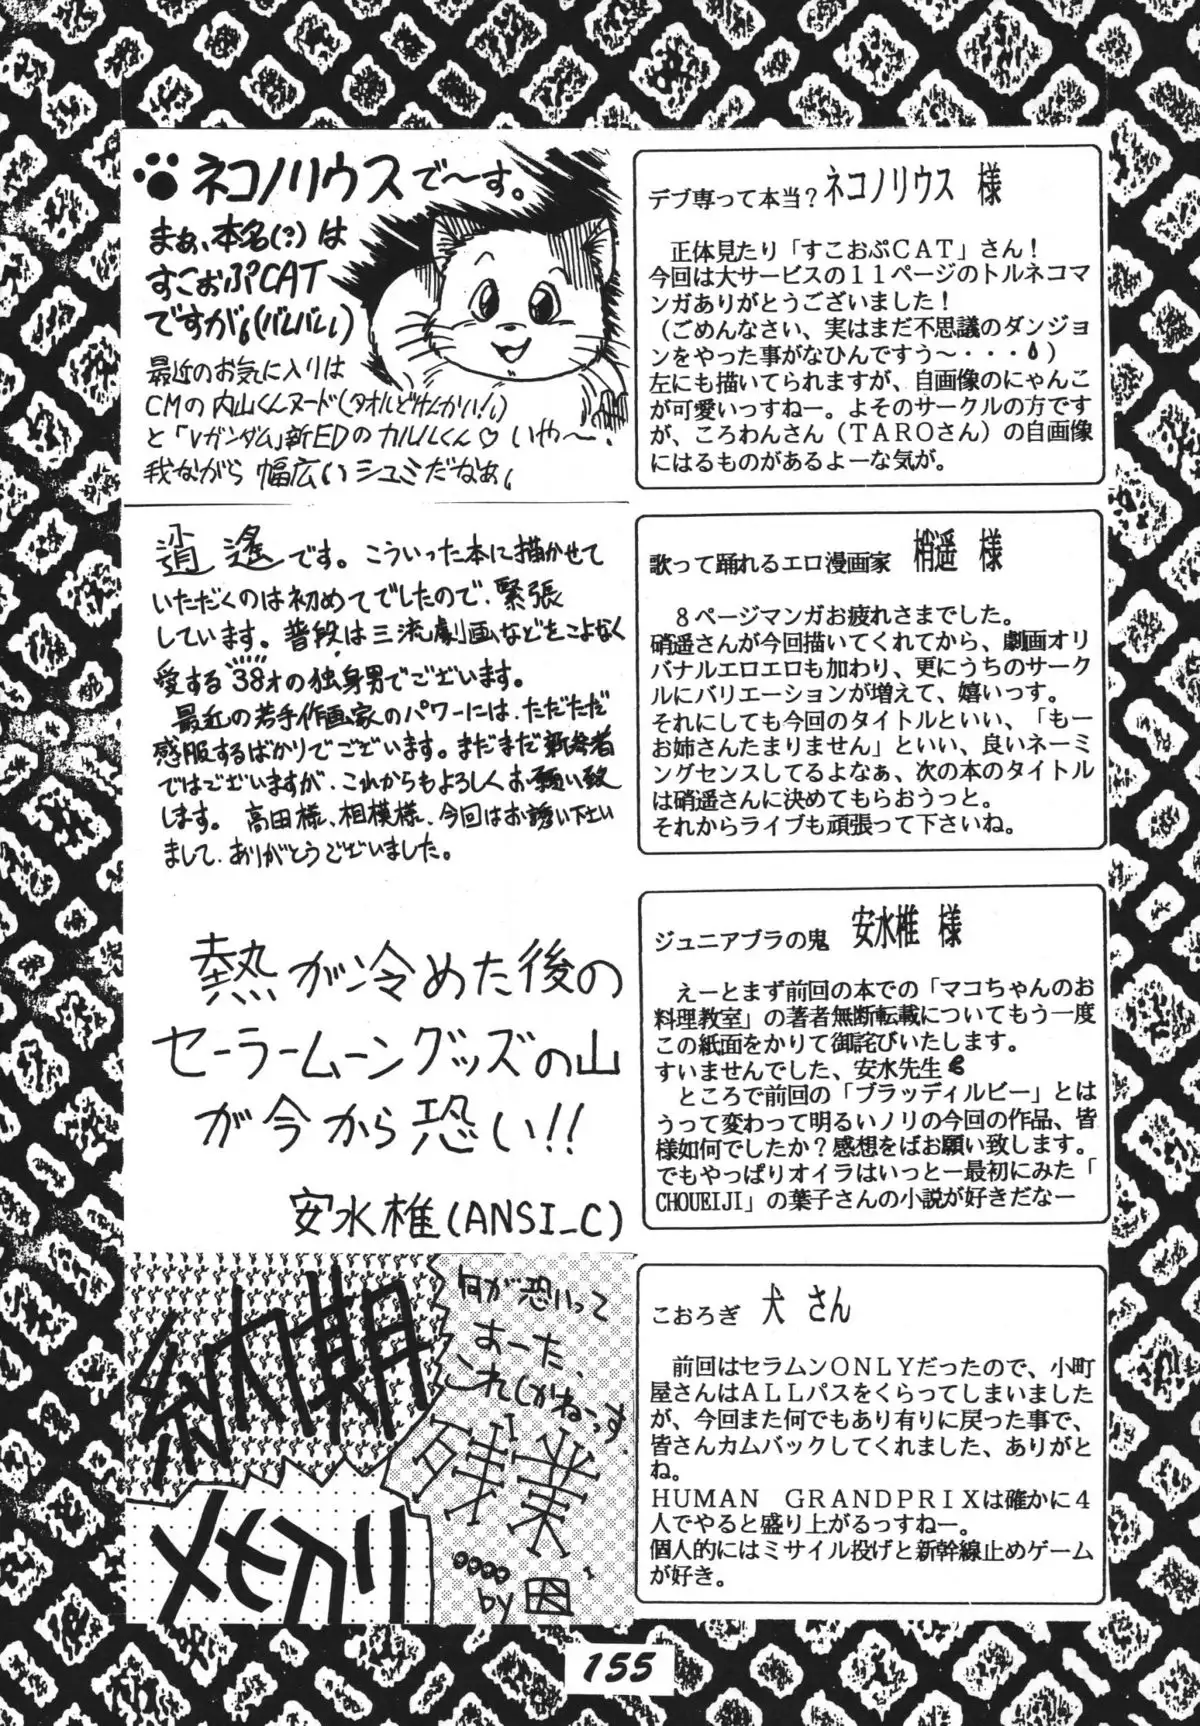 ネコノリウスで〜す。
まぁ、本名(?)は
すこおぷCAT
ですが。(バレバレ)
最近のお気に入りは
CMの内山くんヌード(タオルどけんかい!)
と「Vガンダム」新EDのカルルくん♡いや〜!
我ながら 幅広い シュミだなぁ。
デブ専って本当? ネコノリウス 様
正体見たり「すこおぷCAT」さん!
今回は大サービスの11ページのトルネコマ
ンガありがとうございました!
(ごめんなさい、実はまだ不思議のダンジョ
ンをやった事がなひんですう〜・・・)
左にも描いてられますが、自画像のにゃんこ
が可愛いっすねー。よそのサークルの方です
が、ころわんさん(TAROさん)の自画像
にはるものがあるよーな気が。
逍遙です。こういった本に描かせて
いただくのは初めてでしたので、緊張
しています。普段は三流劇画などをこよなく
愛する38才の独身男でございます。
最近の若手作画家のパワーには、ただただ
感服するばかりでございます。まだまだ新参者
ではございますが、これからもよろしくお願い致
します。高田様、相模様、今回はお誘い下さい
まして、ありがとうございました。
歌って踊れるエロ漫画家 梢遥 様
8ページマンガお疲れさまでした。
硝遥さんが今回描いてくれてから、劇画オリ
バナルエロエロも加わり、更にうちのサーク
ルにバリエーションが増えて、嬉いっす。
それにしても今回のタイトルといい、「もー
お姉さんたまりません」といい、良いネーミ
ングセンスしてるよなぁ、次の本のタイトル
は硝遥さんに決めてもらおうっと。
それからライブも頑張って下さいね。
熱が冷めた後の
セーラームーングッズの山
が今から恐い!!
安水椎(ANSI_C)
ジュニアブラの鬼 安水椎 様
えーとまず前回の本での「マコちゃんのお
料理教室」の著者無断転載についてもう一度
この紙面をかりて御詫びいたします。
すいませんでした、安水先生
ところで前回の「ブラッディルビー」とは
うって変わって明るいノリの今回の作品、皆
様如何でしたか?感想をばお願い致します。
でもやっぱりオイラはいっとー最初にみた「
CHOUEIJI」の葉子さんの小説が好きだなー
幼期
何が恐いって
すーた、
これしかねーっす。
残業
by
こおろぎ 犬 さん
前回はセラムンONLYだったので、小町
屋さんはALLパスをくらってしまいました
が、今回また何でもあり有りに戻った事で、
皆さんカムバックしてくれました、ありがと
ね。
HUMAN GRANDPRIXは確かに4
人でやると盛り上がるっすねー。
個人的にはミサイル投げと新幹線止めゲーム
が好き。
155